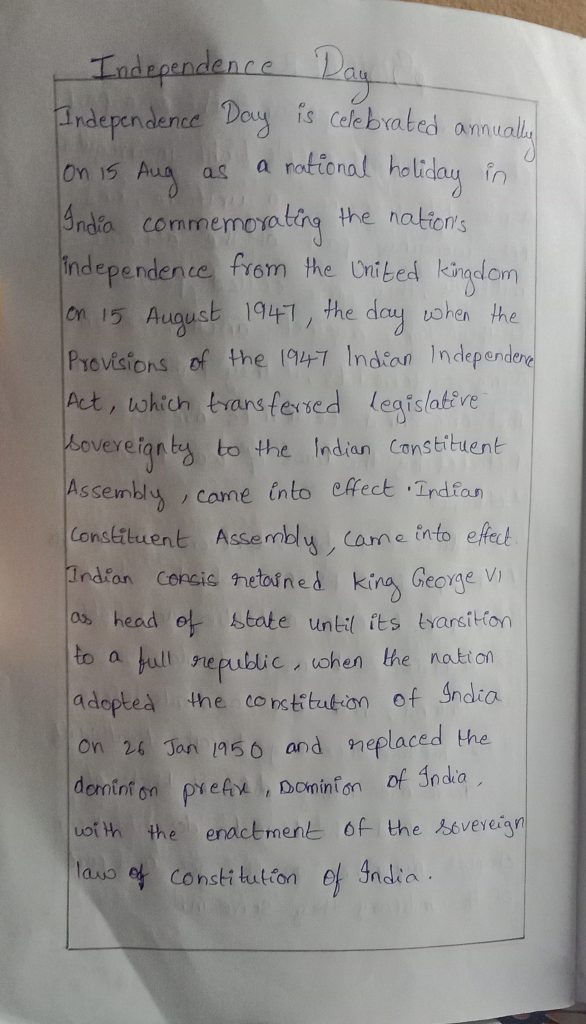 Independence Day
Independence Day is celebrated annually
on 15 Aug as a national holiday in
India commemorating the nation's
independence from the United kingdom
on 15 August 1947, the day when the
Provisions of the 1947 Indian Independence
Act, which transferred legislative
sovereignty to the Indian Constituent
Assembly, came into effect. Indian
Constituent Assembly, came into effect.
Indian consis retained king George VI
as head of state until its transition
to a full republic, when the nation
adopted the constitution of India
on 26 Jan 1950 and replaced the
dominion prefix, Dominion of India,
with the enactment of the sovereign
law of constitution of India.